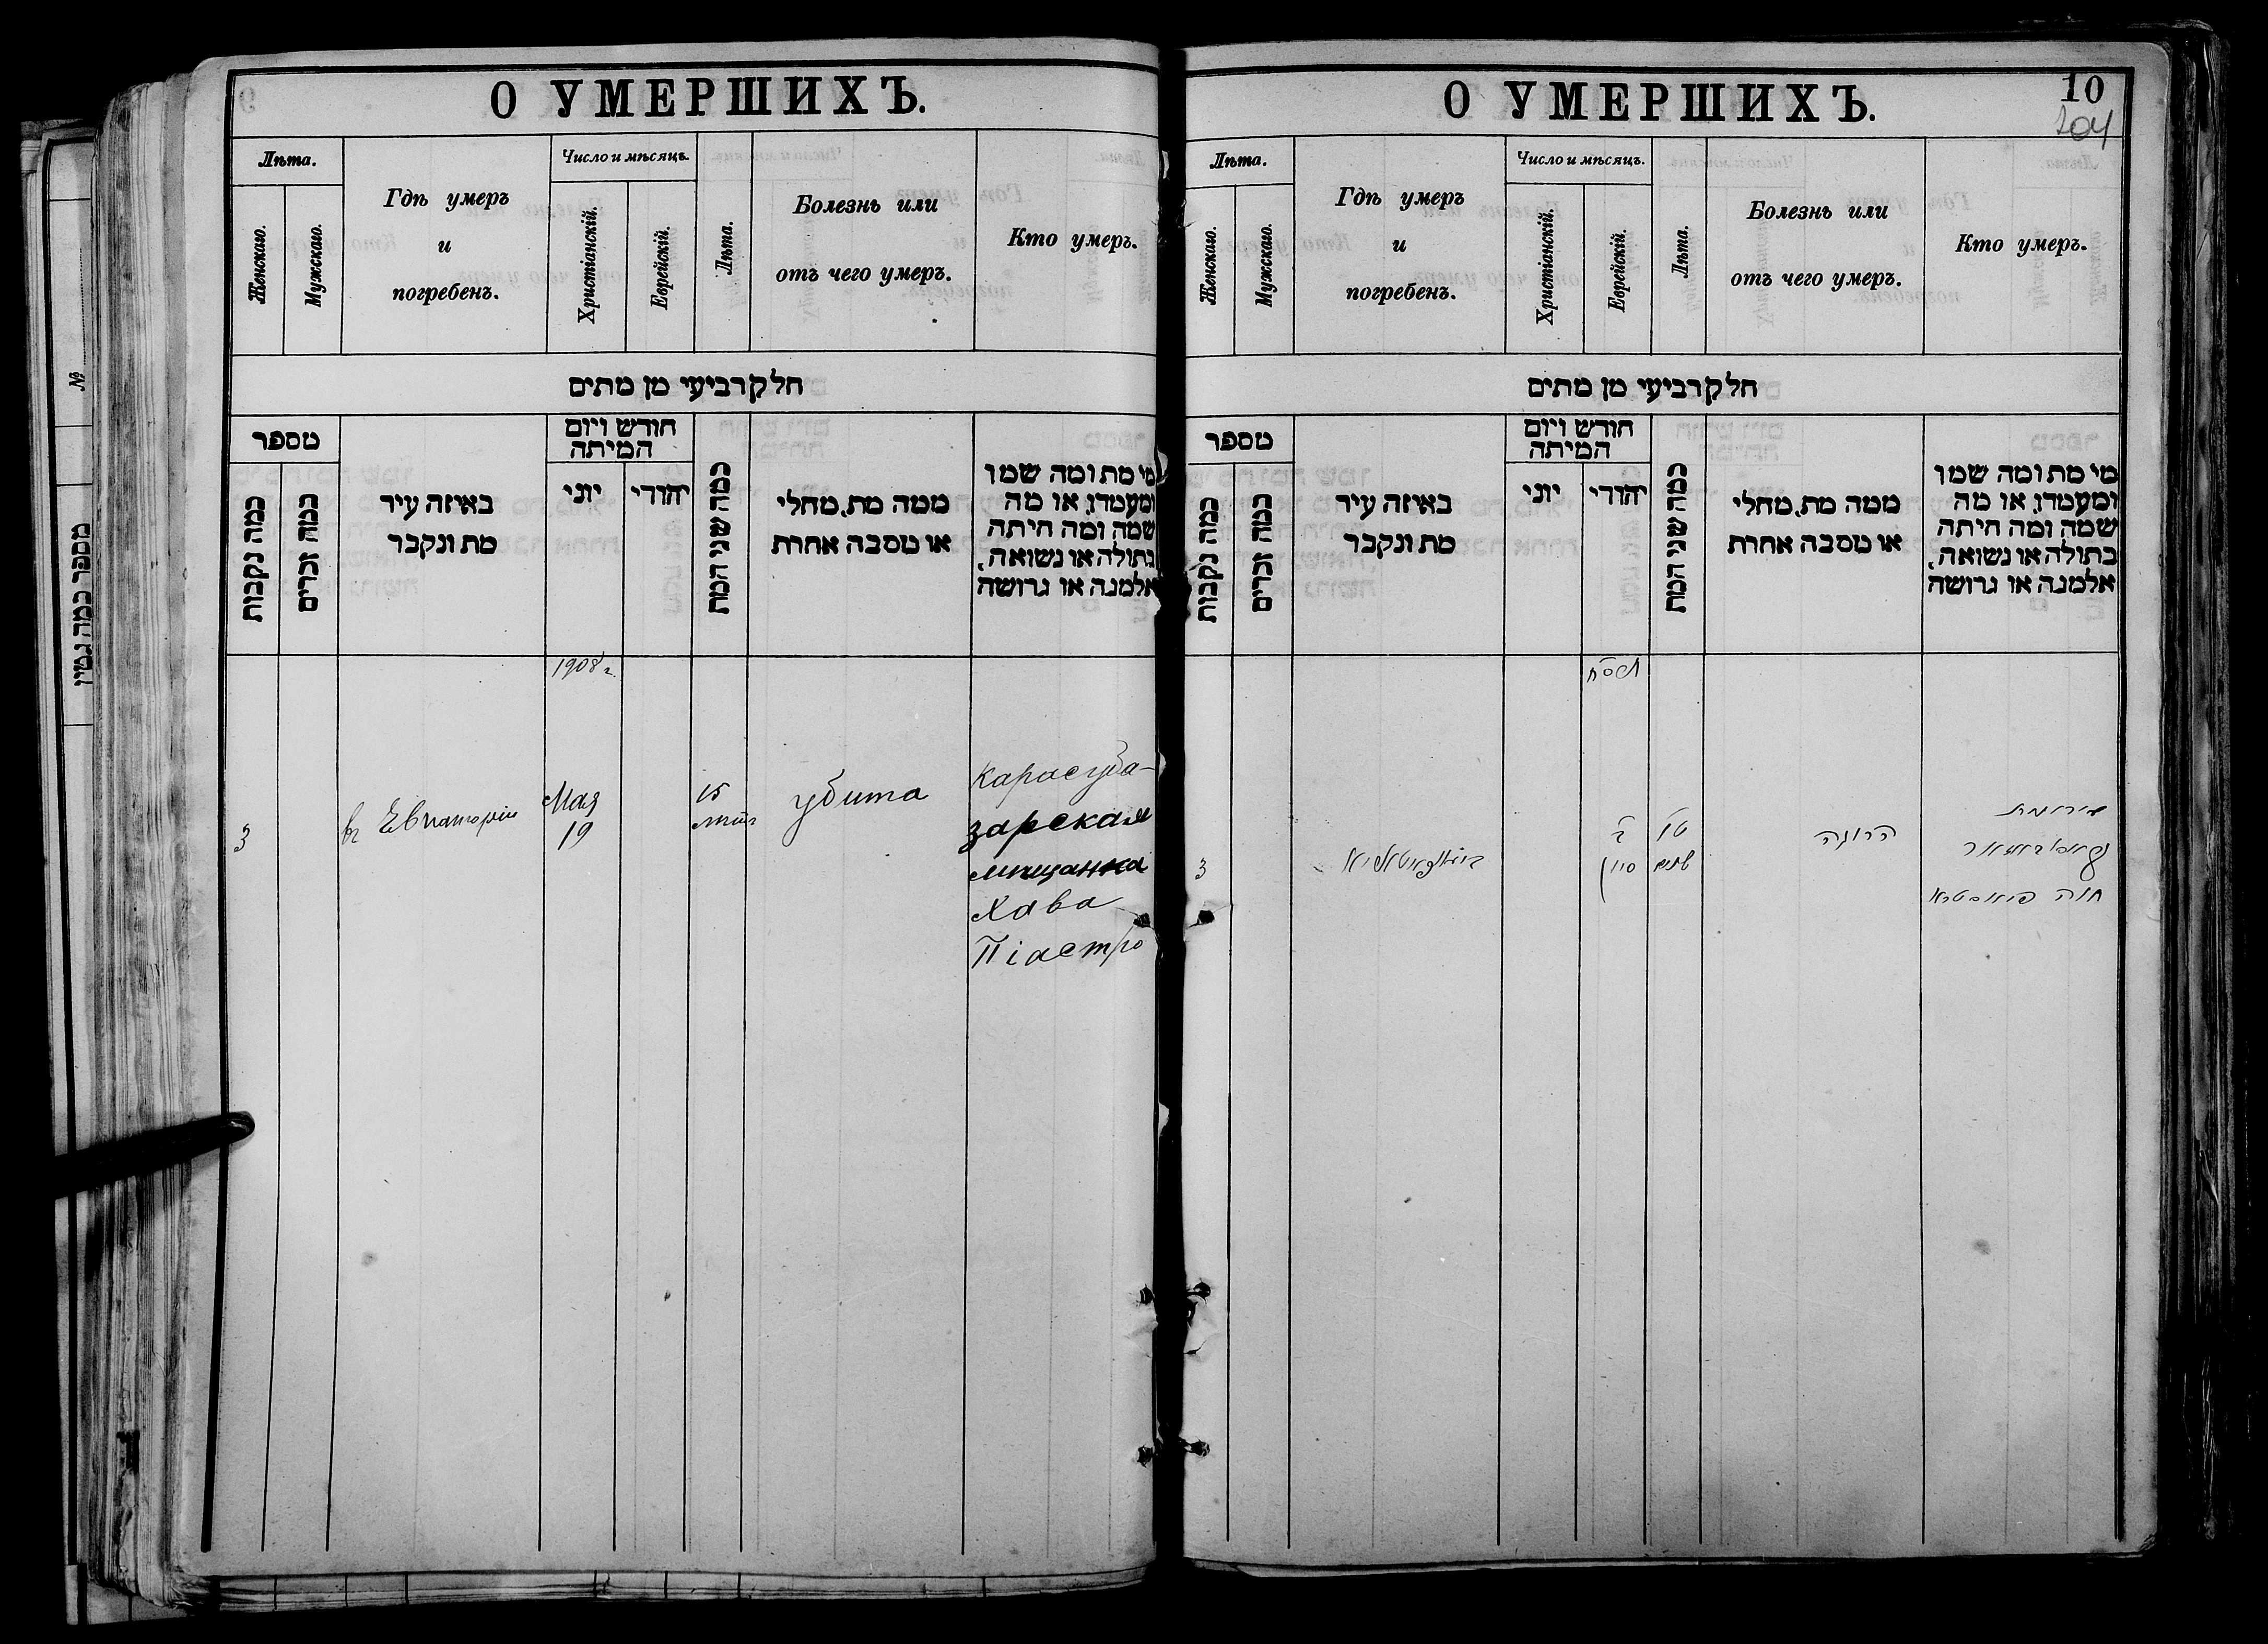 О УМЕРШИХЪ.
Лѣта.
Женскаго.
Мужскаго.
Гдѣ умеръ
и
погребенъ.
Число и мѣсяцъ.
Христіанскій.
Еврейскій.
Лѣта.
Болезнь или
отъ чего умеръ.
Кто умеръ.
חלק רביעי מן מתים
מספר
כמה נקבות
כמה זכרים
באיזה עיר
מת ונקבר
חודש ויום
המיתה
יוני
יהודי
כמה שני המת
ממה מת, מחלי
או מסבה אחרת
מי מת ומה שמו
ומעמדו, או מה
שמה ומה היתה
בתולה או נשואה,
אלמנה או גרושה
1908 г.
3
въ Евпаторіи
Мая
19
15
лѣтъ
убита
Карасуба-
зарская
мѣщанка
Хава
Піастро
О УМЕРШИХЪ.
10
204
Лѣта.
Женскаго.
Мужскаго.
Гдѣ умеръ
и
погребенъ.
Число и мѣсяцъ.
Христіанскій.
Еврейскій.
Лѣта.
Болезнь или
отъ чего умеръ.
Кто умеръ.
חלק רביעי מן מתים
מספר
כמה נקבות
כמה זכרים
באיזה עיר
מת ונקבר
חודש ויום
המיתה
יוני
יהודי
כמה שני המת
ממה מת, מחלי
או מסבה אחרת
מי מת ומה שמו
ומעמדו, או מה
שמה ומה היתה
בתולה או נשואה,
אלמנה או גרושה
3
סיון
טו
שנים
הרוגה
חוה פיאסטרא
№
מספר כמה גטין